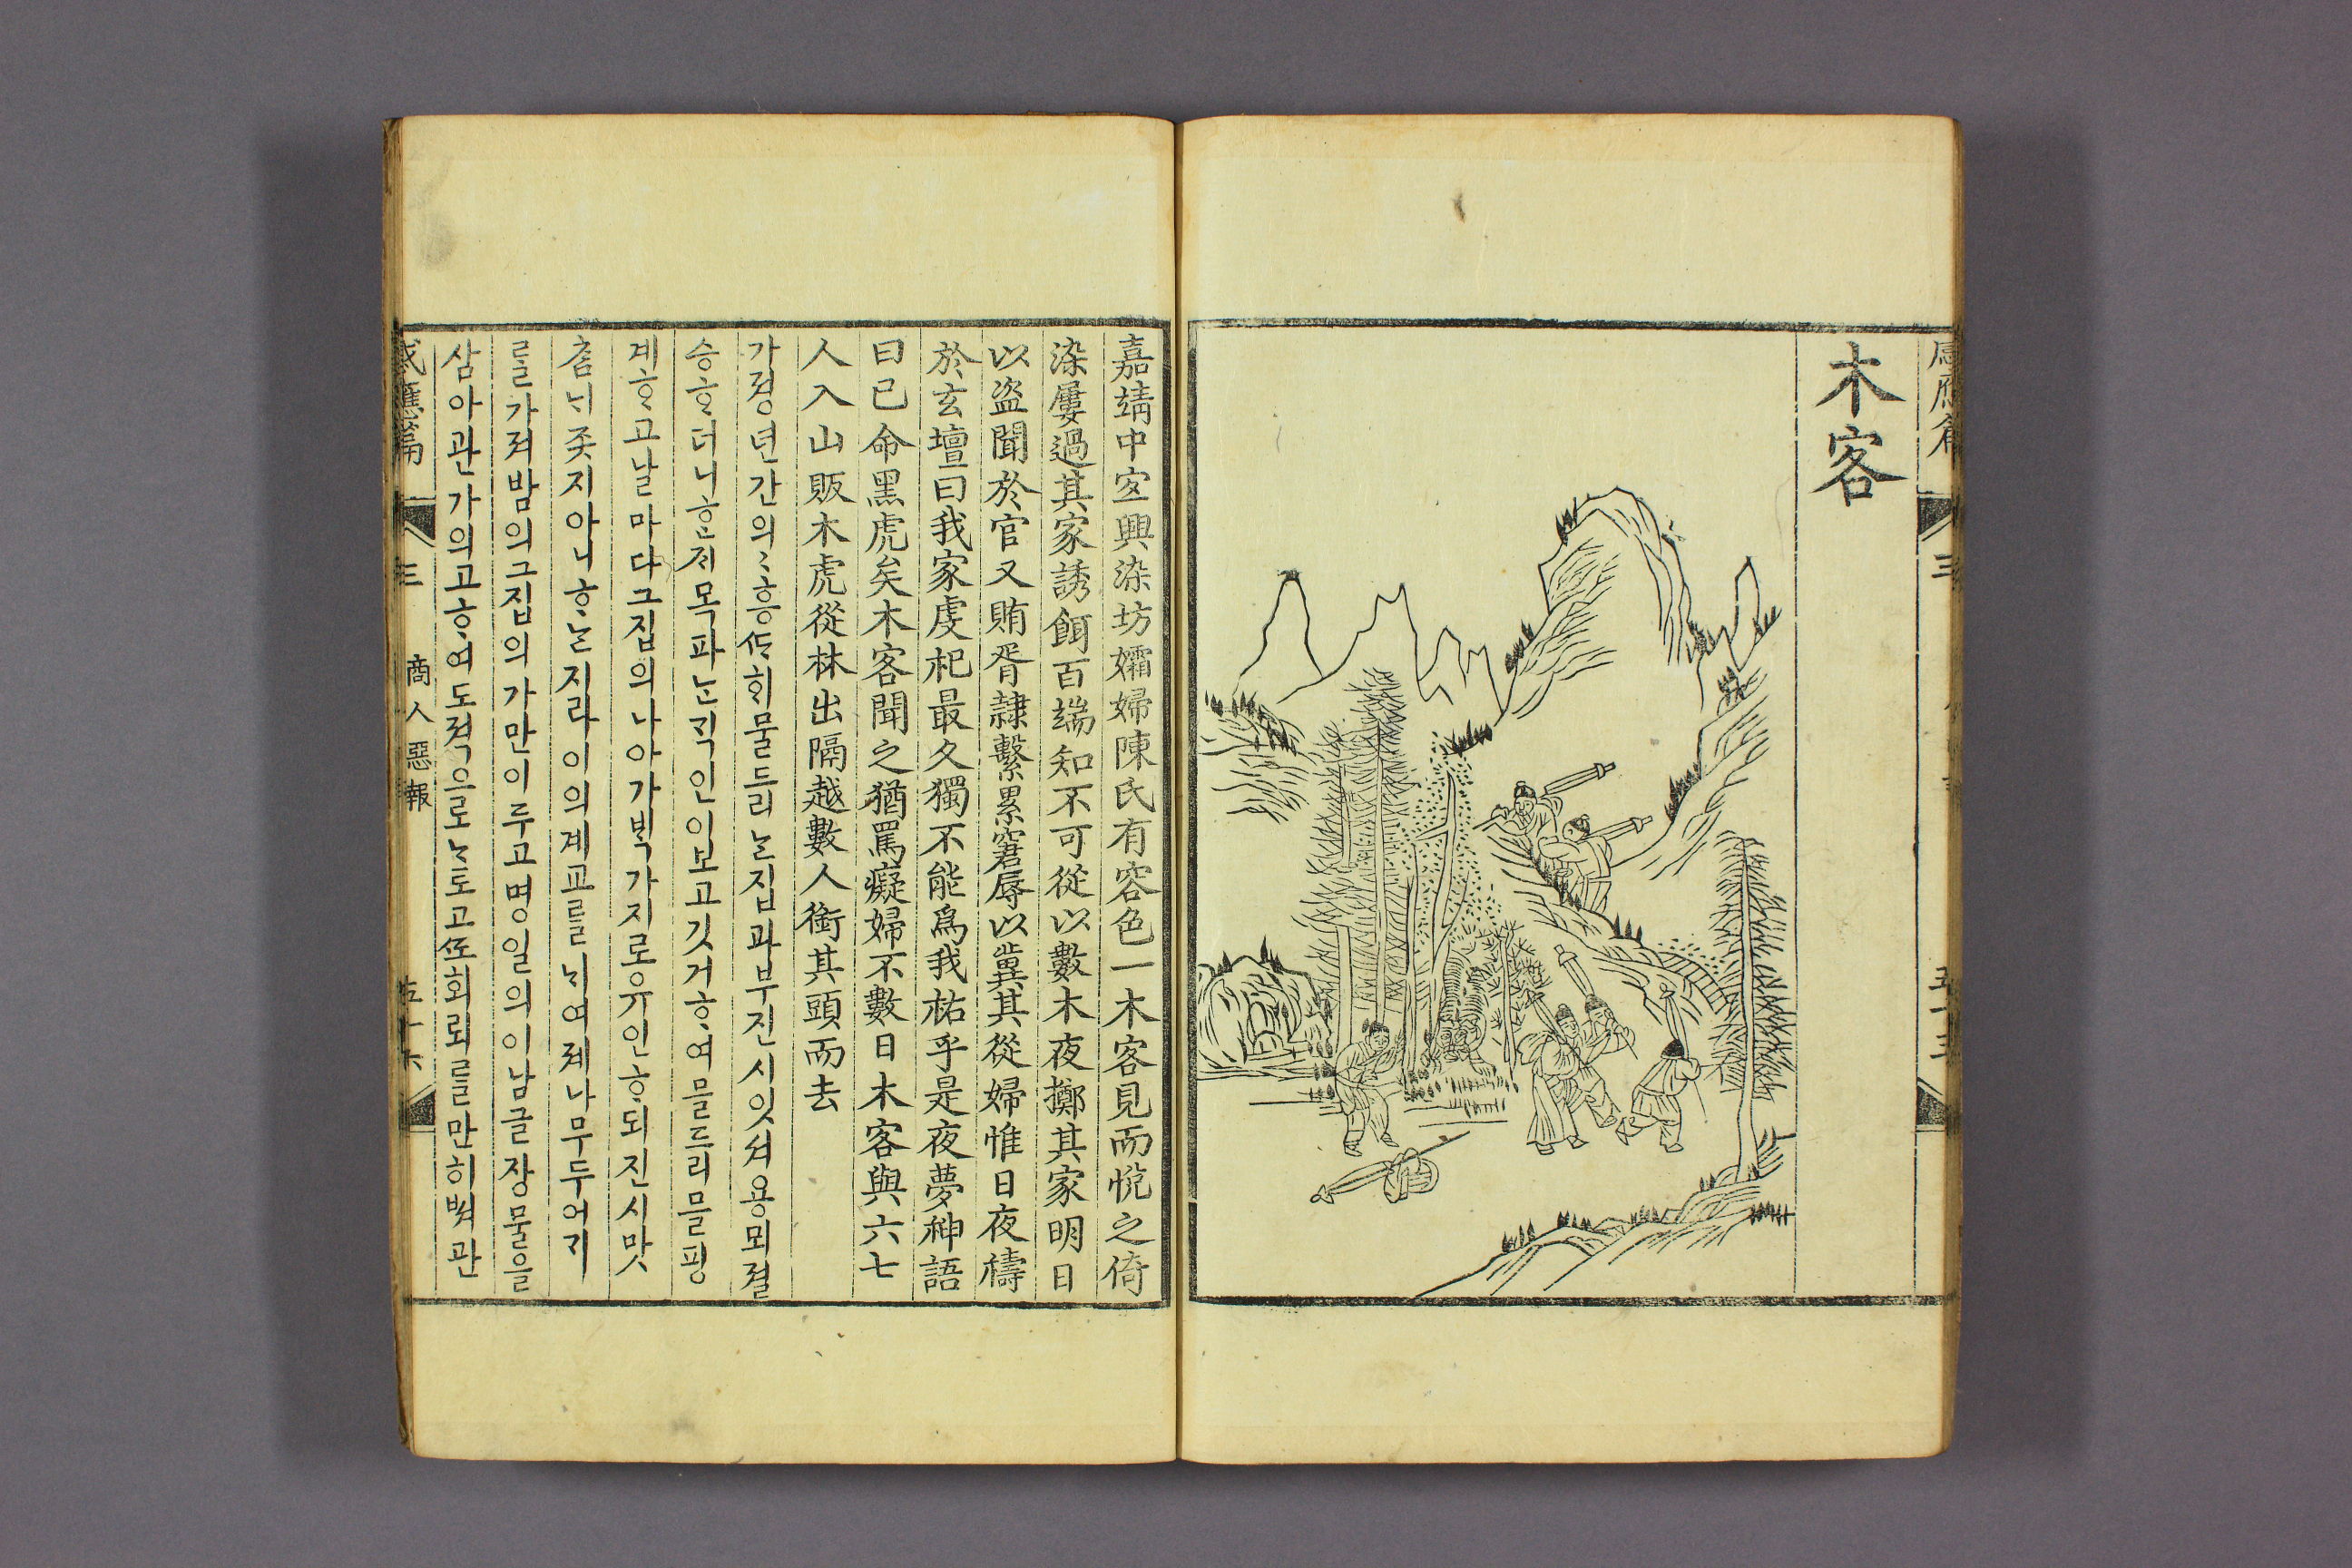 木客
嘉靖中宜興染坊孀婦陳氏有容色一木客見而悅之倚
染屢過其家誘餌百端知不可從以數木夜擲其家明日
以盜聞於官又賄胥隷繫累窘辱以冀其從婦惟日夜禱
於玄壇曰我家虔祀最久獨不能爲我祐乎是夜夢神語
曰已命黑虎矣木客聞之猶罵癡婦不數日木客與六七
人入山販木虎從林出隔越數人銜其頭而去
가졍년간의〻흥ᄯᅡᄒᆡ물드리ᄂᆞᆫ집과부진시잇셔용뫼졀
승ᄒᆞ더니ᄒᆞᆫᄌᆡ목파ᄂᆞᆫᄀᆡᆨ인이보고깃거ᄒᆞ여믈드리믈핑
계ᄒᆞ고날마다그집의나아가ᄇᆡᆨ가지로유인ᄒᆞ되진시맛
ᄎᆞᆷᄂᆡ좃지아니ᄒᆞᄂᆞᆫ지라이의계교ᄅᆞᆯᄂᆡ여졔나무두어ᄀᆡ
ᄅᆞᆯ가져밤의그집의가만이두고명일의이남글장물을
삼아관가의고ᄒᆞ여도젹으로ᄂᆞ토고ᄯᅩ회뢰ᄅᆞᆯ만히ᄡᅥ관
感應篇 三 商人惡報 五十六